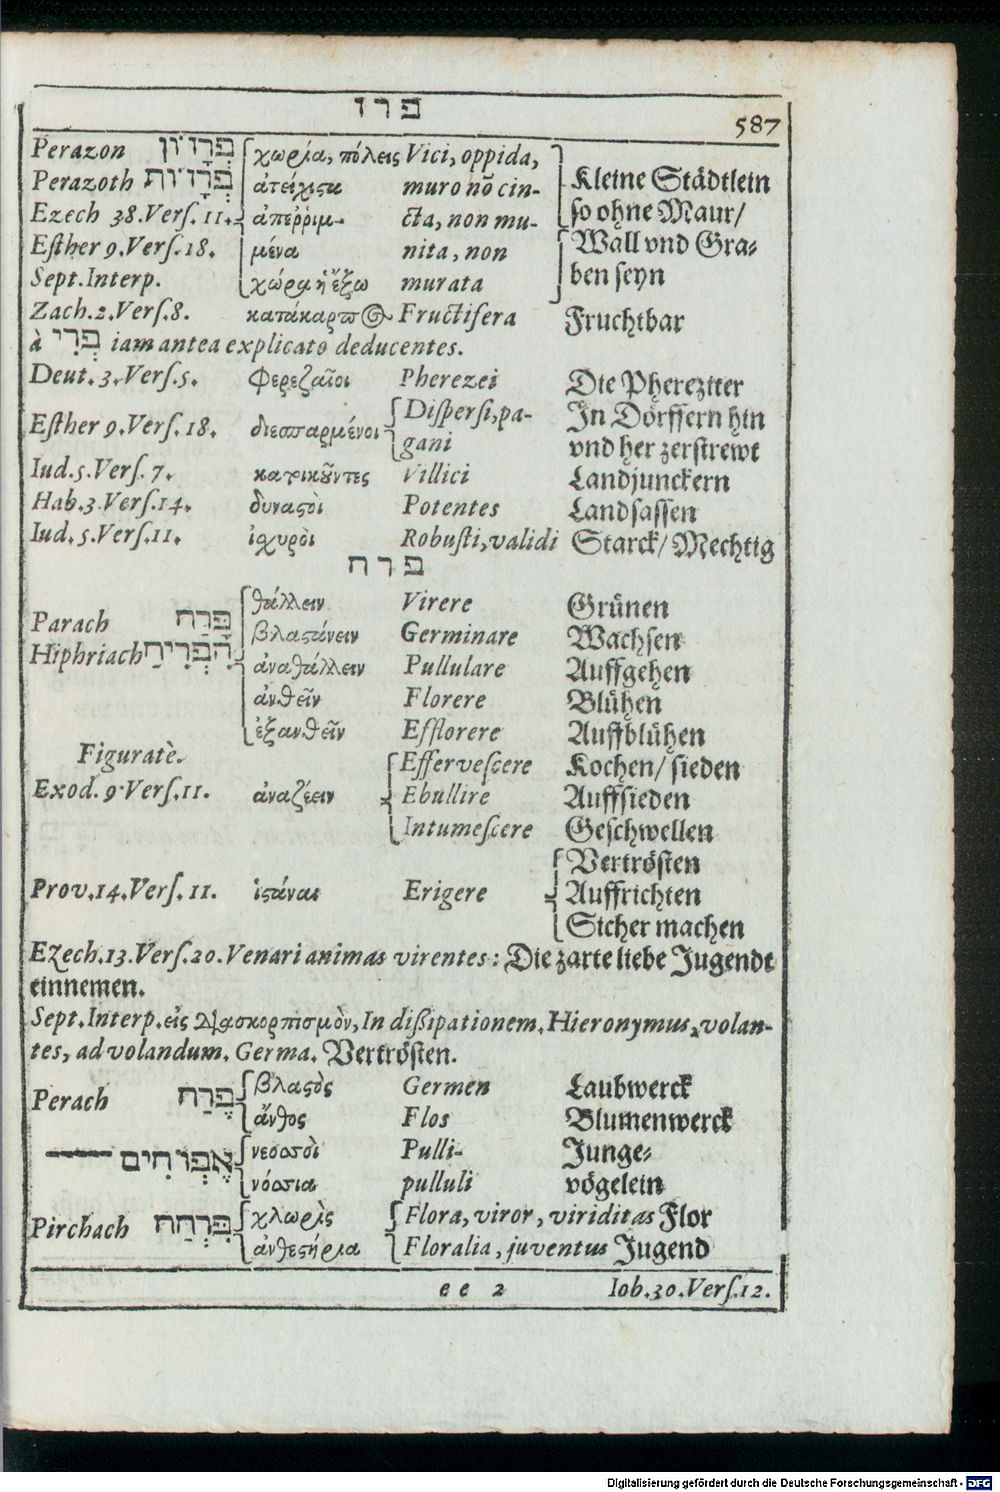 פרז
587
Perazon פְּרָזוֹן χωρία, πόλεις Vici, oppida,
Perazoth פְּרָזוֹת ἀτείχιστα muro nō cin- Kleine Städtlein
Ezech 38.Verſ.11. ἀπεῤῥιμ- cta, non mu- ſo ohne Maur/
Eſther 9.Verſ.18. μένα nita, non Wall vnd Gra-
Sept.Interp. χώρα ἡ ἔξω murata ben ſeyn
Zach.2.Verſ.8. κατάκαρπος Fructifera Fruchtbar
à פְּרִי iam antea explicato deducentes.
Deut.3.Verſ.5. Φερεζαῖοι Pherezei Die Phereziter
Eſther 9.Verſ.18. διεσπαρμένοι Diſperſi, pa- In Dörffern hin
gani vnd her zerſtrewt
Iud.5.Verſ.7. κατοικοῦντες Villici Landjunckern
Hab.3.Verſ.14. δυναςοὶ Potentes Landſaſſen
Iud.5.Verſ.11. ἰσχυροὶ Robuſti, validi Starck/ Mechtig
פרח
θάλλειν Virere Grünen
Parach פָּרַח βλαςάνειν Germinare Wachſen
Hiphriach הִפְרִיחַ ἀναθάλλειν Pullulare Auffgehen
ἀνθεῖν Florere Blühen
ἐξανθεῖν Efflorere Auffblühen
Figuratè. Efferveſcere Kochen/ ſieden
Exod.9.Verſ.11. ἀναζέειν Ebullire Auffſieden
Intumeſcere Geſchwellen
Vertröſten
Prov.14.Verſ.11. ἱςάναι Erigere Auffrichten
Sicher machen
Ezech.13.Verſ.20. Venari animas virentes: Die zarte liebe Jugendt
einnemen.
Sept.Interp. εἰς διασκορπισμὸν, In diſsipationem. Hieronymus, volan-
tes, ad volandum. Germa. Vertröſten.
Perach פֶּרַח βλαςὸς Germen Laubwerck
ἄνθος Flos Blumenwerck
אֶפְרֹחִים νεοσσοὶ Pulli- Junge-
νόσσια pulluli vögelein
Pirchach פִּרְחַח χλωρὶς Flora, viror, viriditas Flor
ἀνθεςήρια Floralia, juventus Jugend
ee 2 Iob.30.Verſ.12.
Digitalisierung gefördert durch die Deutsche Forschungsgemeinschaft - DFG